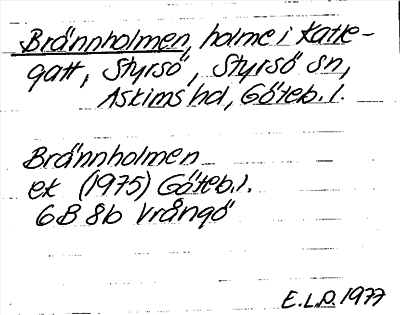 Brännholmen, holme i Katte-
gatt, Styrsö, Styrsö sn,
Askims hd, Göteb. l.
Brännholmen
ek (1975) Göteb. l.
6B 8b Vrångö
E.L.D. 1977